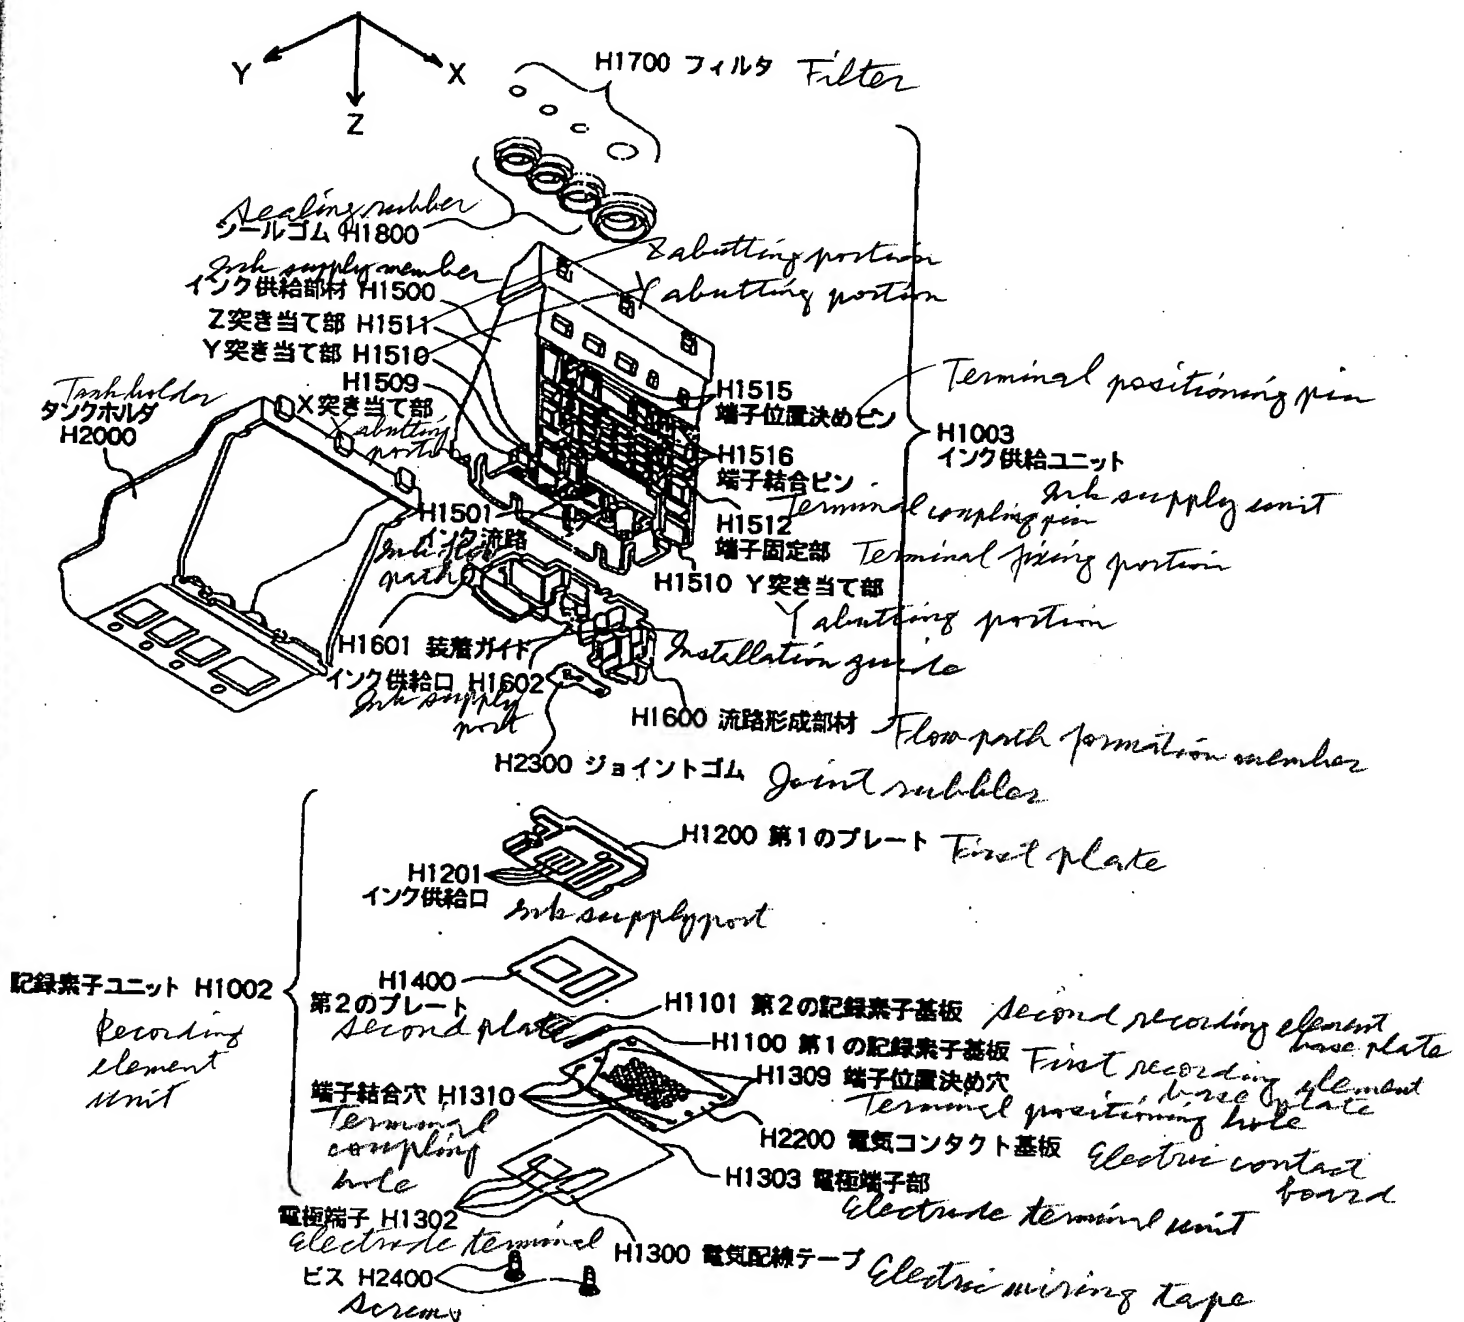 Y
X
Z
H1700 フィルタ Filter
Sealing rubber
シールゴム H1800
Z abutting portion
Ink supply member
インク供給部材 H1500
Y abutting portion
Z突き当て部 H1511
Y突き当て部 H1510
H1509
X突き当て部
X abutting portion
Tank holder
タンクホルダ
H2000
H1515
端子位置決めピン
Terminal positioning pin
H1516
端子結合ピン
Terminal coupling pin
H1003
インク供給ユニット
Ink supply unit
H1512
端子固定部 Terminal fixing portion
H1501
インク流路
Ink flow
path
H1510 Y突き当て部
Y abutting portion
H1601 装着ガイド
Installation guide
インク供給口 H1602
Ink supply
port
H1600 流路形成部材 Flow path formation member
H2300 ジョイントゴム Joint rubbler
H1200 第1のプレート First plate
H1201
インク供給口
Ink supply port
記録素子ユニット H1002
Recording
element
unit
H1400
第2のプレート
Second plate
H1101 第2の記録素子基板 Second recording element
base plate
H1100 第1の記録素子基板 First recording element
base plate
H1309 端子位置決め穴
Terminal positioning hole
端子結合穴 H1310
Terminal
coupling
hole
H2200 電気コンタクト基板 Electric contact
board
H1303 電極端子部
Electrode terminal unit
電極端子 H1302
Electrode terminal
H1300 電気配線テープ Electric wiring tape
ビス H2400
Screws